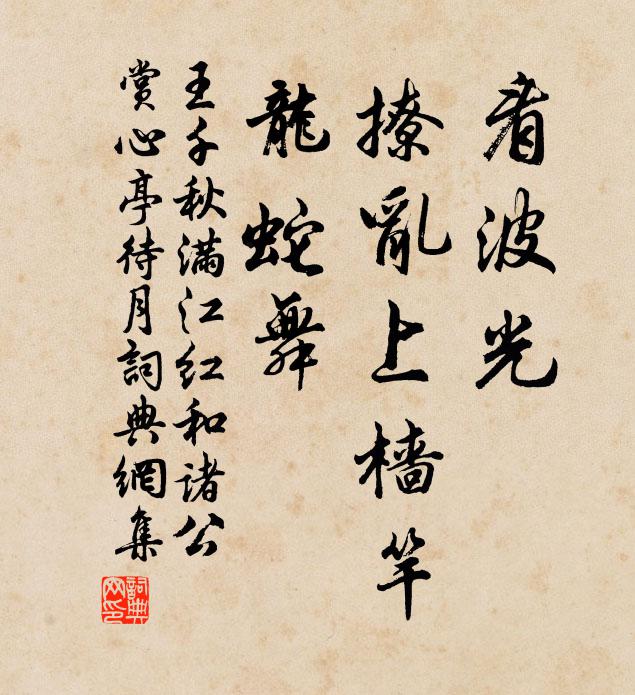 看波光
撩亂上檣竿
龍蛇舞
王千秋滿江紅和諸公
賞心亭待月詞典網集
詞典
网印